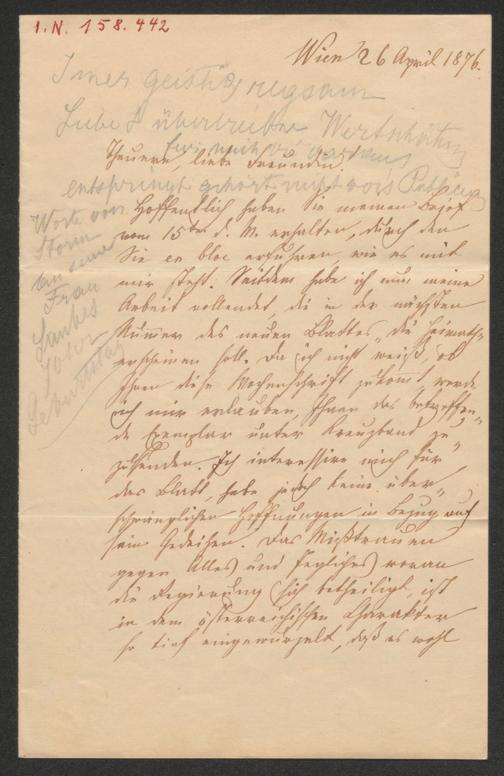 I.N. 158.442
Wien 26 April 1876.
Immer geistig regsam
Liebe & übertriebne Wertschätzung
für mich
entspringt gehört nicht vor's Publicum
Theuere, liebe Freundin!
Worte von
Storm
an seine
Frau
Geburtstag
Hoffentlich haben Sie meinen Brief
vom 15ten d. M. erhalten, durch den
Sie en bloc erfuhren, wie es mit
mir steht. Seitdem habe ich nun meine
Arbeit vollendet, die in der nächsten
Nummer des neuen Blattes „die Heimath"
erscheinen soll. Da ich nicht weiß, ob
Ihnen diese Wochenschrift zukommt, werde
ich mir erlauben, Ihnen das betreffen-
de Exemplar unter Kreuzband zu-
zusenden. Ich interessire mich für
das Blatt, habe jedoch keine über-
schwenglichen Hoffnungen in Bezug auf
sein Gedeihen. Das Mißtrauen
gegen Alles und Jegliches woran
die Regierung sich betheiligt, ist
in dem österreichischen Charakter
so tief eingewurzelt, daß es wohl